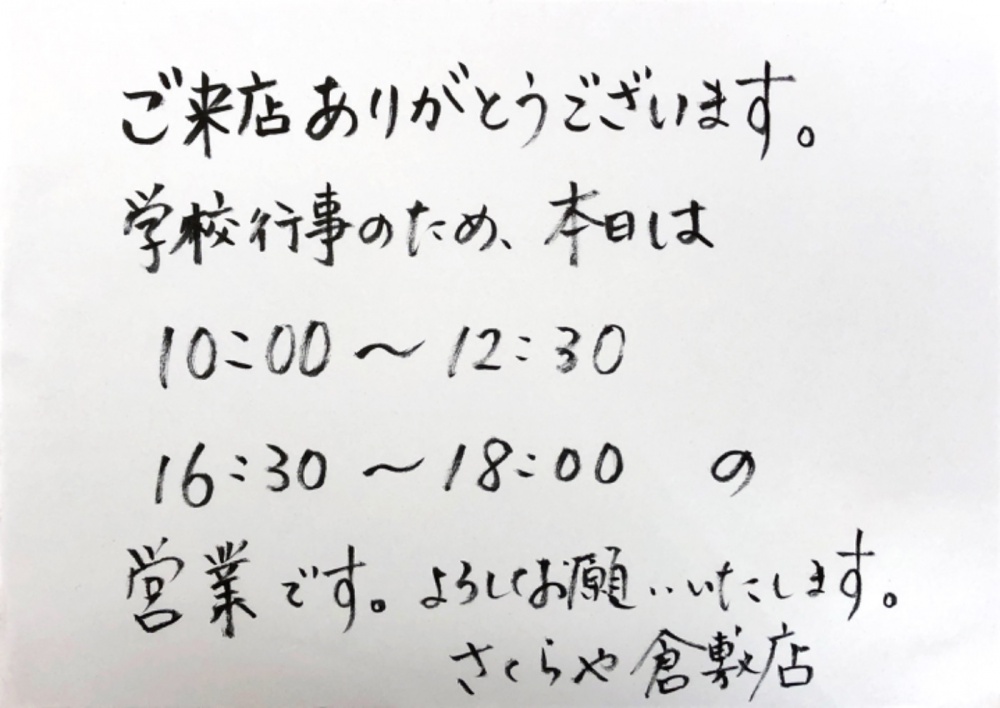 ご来店ありがとうございます。
学校行事のため、本日は
10:00～12:30
16:30～18:00 の
営業です。よろしくお願いいたします。
さくらや倉敷店